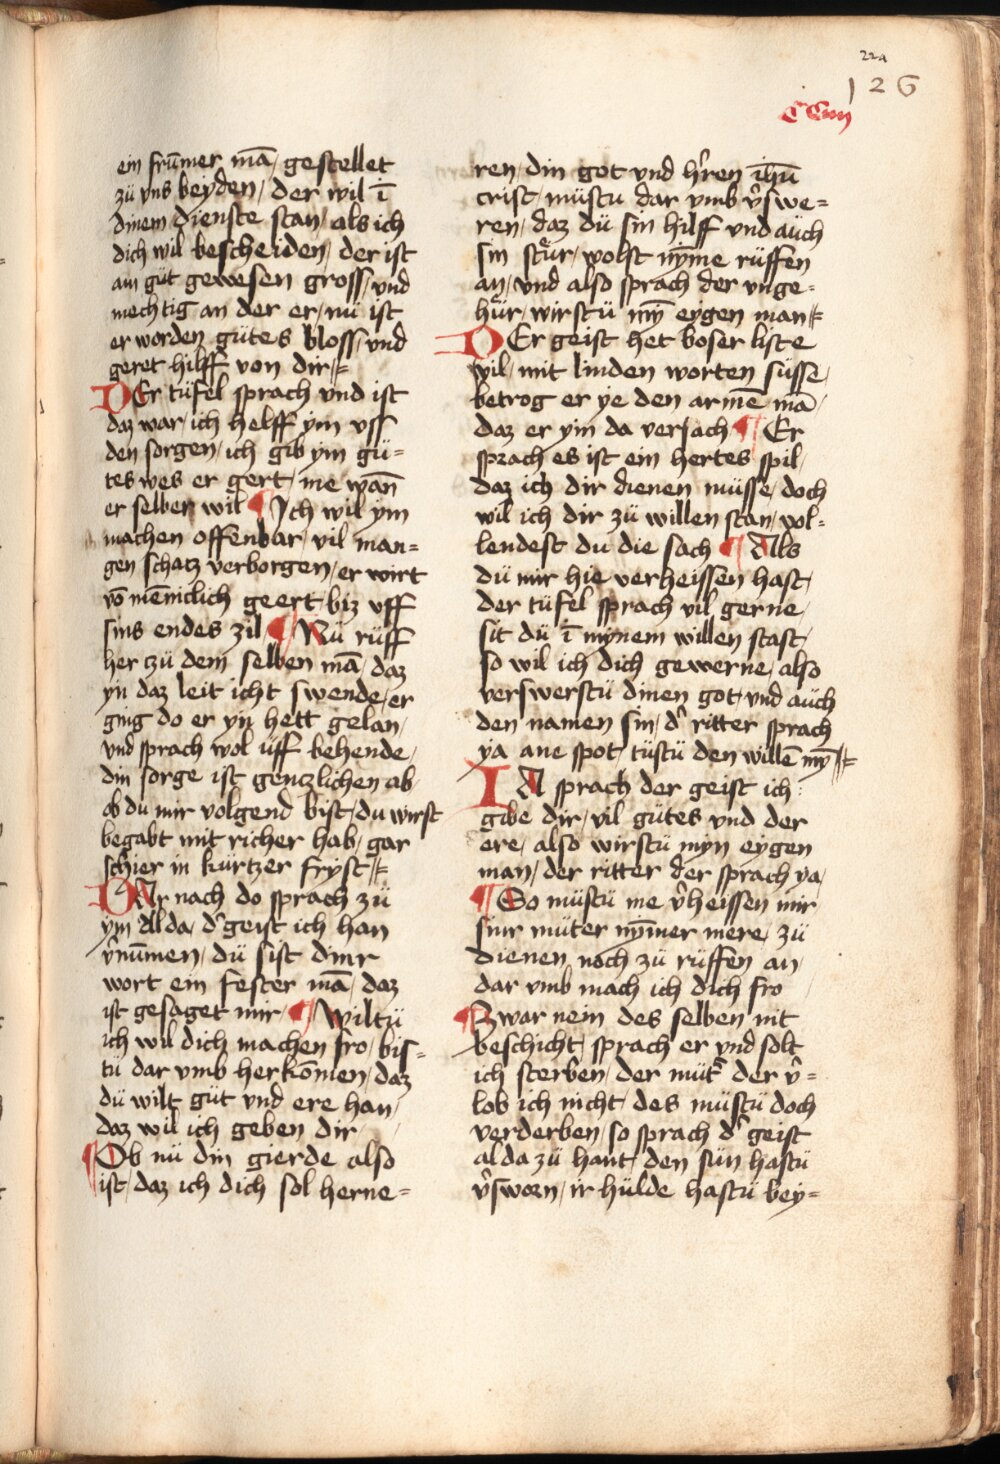 22a
126
CCiiij
ein frūmer mā / gestellet
zü vns beyden / der wil ī
dinem dienste stan / als ich
dich wil bescheiden / der ist
am güt gewesen gross / vnd
mechtig an der er / nu ist
er worden gütes bloss / vnd
geret hilff von dir /
DEr tüfel sprach vnd ist
daz war / ich helff ym vff
den sorgen / ich gib ym gü=
tes wes er gert / me wañ
er selber wil ¶ Ich wil ym
machen offenbar / vil man=
gen schatz verborgen / er wirt
vō mēniclich geert / biz vff
sins endes zil ¶ Nü rüff
her zü dem selben mā / daz
yn daz leit icht swende / er
ging do er yn hett gelan /
vnd sprach wol üff behende /
din sorge ist gentzlichen ab /
ob du mir volgend bist / du wirst
begabt mit richer hab / gar
schier in kürtzer fryst /
DAr nach do sprach zü
ym alda / d' geist ich han
v'nūmen / dü sist dinr
wort ein fester mā / daz
ist gesaget mir ¶ Wiltü
ich wil dich machen fro / bis=
tu dar vmb herkōmen / daz
dü wilt güt vnd ere han /
daz wil ich geben dir
¶ Ob nü din gierde also
ist / daz ich dich sol herne=
ren / din got vnd h'ren ihū
crist / müstu dar vmb v'swe=
ren / daz dü sin hilff vnd aüch
sin stür / wolst nȳme rüffen
an / vnd also sprach der vnge=
hür / wirstü mȳ eygen man /
DEr geist het boser liste
vil / mit linden worten süsse /
betrog er ye den armē mā /
daz er yin da versach ¶ Er
sprach es ist ein hertes spil /
daz ich dir dienen müsse / doch
wil ich dir zü willen stan / vol=
lendest du die sach ¶ Als
dü mir hie verheissen hast /
der tüfel sprach vil gerne /
sit dü ī mynem willen stast /
so wil ich dich gewerne / also
verswerstü dinen got / vnd aüch
den namen sin / d' ritter sprach
ya ane spot / tüstü den willē mȳ /
IA sprach der geist ich
gibe dir / vil gütes vnd der
ere / also wirstü myn eygen
man / der ritter der sprach ya /
¶ So müstü me v'heissen mir
sinr müter nȳmer mere / zü
dienen noch zü rüffen an /
dar vmb mach ich dich fro
¶ Zwar nein des selben nit
beschicht / sprach er vnd solt
ich sterben / der müt' der v'=
lob ich nicht / des müstü doch
verderben / so sprach d' geist
alda zü hant / den sün hastü
v'sworn / ir hülde hastü bey=